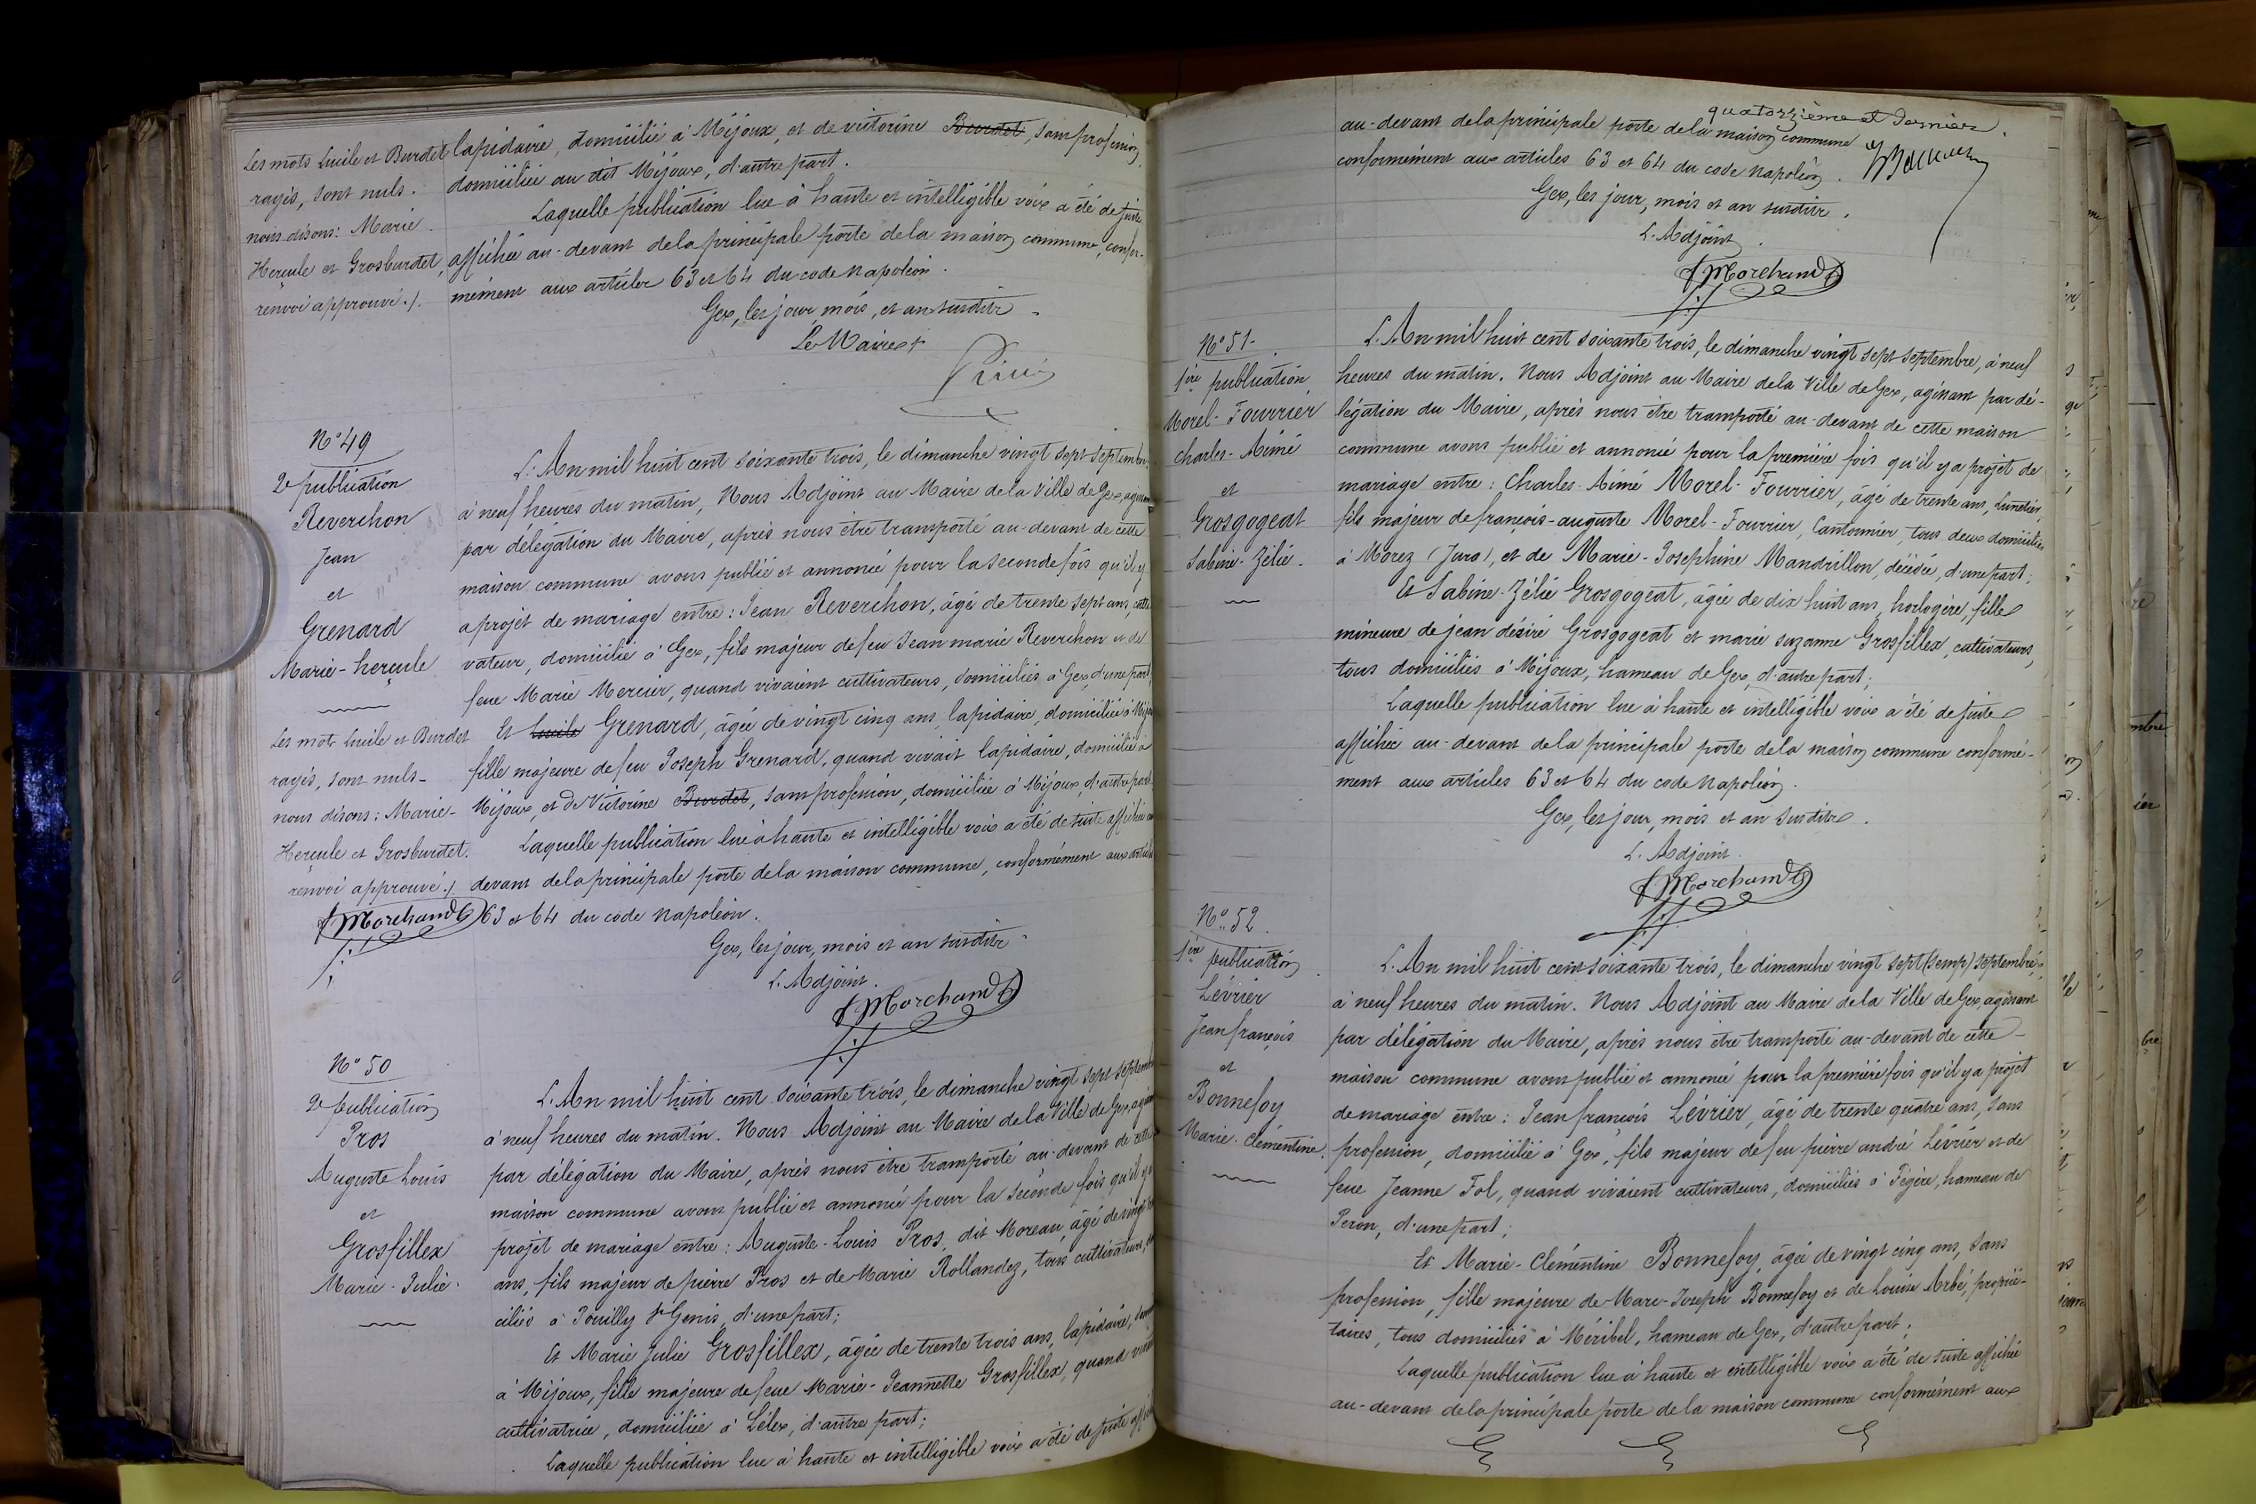 Les mots Lucile et Burdet
rayés, sont nuls.
nous disons: Marie
Hercule et Grosburdet,
renvoi approuvé ./.
lapidaire, domicilié à Mijoux, et de victorine Burdet, sans profession
domiciliée au dit Mijoux, d'autre part.
Laquelle publication lue à haute et intelligible voix a été de suite
affichée au-devant de la principale porte de la maison commune, confor-
mément aux articles 63 et 64 du code Napoléon.
Gex, les jour, mois, et an susdits
Le Maire
N° 49
2e publication
Reverchon
Jean
et
Grenard
Marie-hercule
Les mots Lucile et Burdet
rayés, sont nuls-
nous disons: Marie-
Hercule et Grosburdet.
renvoi approuvé ./.
Morchand
L'An mil huit cent soixante trois, le dimanche vingt sept Septembre
à neuf heures du matin, Nous Adjoint au Maire de la Ville de Gex, agissant
par délégation du Maire, après nous être transporté au-devant de cette
maison commune avons publié et annoncé pour la seconde fois qu'il y
a projet de mariage entre: Jean Reverchon, âgé de trente sept ans, culti-
vateur, domicilié à Gex, fils majeur de feu Jean marie Reverchon et de
feue Marie Mercier, quand vivaient cultivateurs, domiciliés à Gex, d'une part;
Et Lucile Grenard, âgée de vingt cinq ans, lapidaire, domiciliée à Mijoux
fille majeure de feu Joseph Grenard, quand vivait lapidaire, domicilié à
Mijoux, et de Victorine Burdet, sans profession, domiciliée à Mijoux, d'autre part
Laquelle publication lue à haute et intelligible voix a été de suite affichée au
devant de la principale porte de la maison commune, conformément aux articles
63 et 64 du code Napoléon.
Gex, les jour, mois et an susdits
L'Adjoint.
Morchand
N° 50
2e publication
Pros
Auguste Louis
et
Grosfillex
Marie-Julie.
L'An mil huit cent soixante trois, le dimanche vingt sept septembre
à neuf heures du matin. Nous Adjoint au Maire de la Ville de Gex, agissant
par délégation du Maire, après nous être transporté au-devant de cette
maison commune avons publié et annoncé pour la seconde fois qu'il y a
projet de mariage entre: Auguste-Louis Pros, dit Moreau, âgé de vingt
ans, fils majeur de pierre Pros et de Marie Rollandez, tous cultivateurs, domi-
ciliés à Pouilly St Genis, d'une part;
Et Marie Julie Grosfillex, âgée de trente trois ans, lapidaire,
à Mijoux, fille majeure de feue Marie-Jeannette Grosfillex, quand vivait
cultivatrice, domiciliée à Lélex, d'autre part;
Laquelle publication lue à haute et intelligible voix a été de suite affichée
quatorzième et dernier.
au-devant de la principale porte de la maison commune
conformément aux articles 63 et 64 du code Napoléon.
Gex, les jour, mois et an susdits.
L'Adjoint.
Morchand
N° 51
1ère publication
Morel-Fourrier
Charles-Aimé
et
Grosgogeat
Sabine-Zélie.
L'An mil huit cent soixante trois, le dimanche vingt sept Septembre, à neuf
heures du matin. Nous Adjoint au Maire de la Ville de Gex, agissant par dé-
légation du Maire, après nous être transporté au-devant de cette maison
commune avons publié et annoncé pour la première fois qu'il y a projet de
mariage entre: Charles-Aimé Morel-Fourrier, âgé de trente ans, Lunetier,
fils majeur de françois-auguste Morel-Fourrier, Cantonnier, tous deux domiciliés
à Morez (Jura), et de Marie-Josephine Mandrillon, décédée, d'une part;
Et Sabine-Zélie Grosgogeat, âgée de dix huit ans, horlogère, fille
mineure de jean désiré Grosgogeat et marie suzanne Grosfillex, cultivateurs,
tous domiciliés à Mijoux, hameau de Gex, d'autre part;
Laquelle publication lue à haute et intelligible voix a été de suite
affichée au-devant de la principale porte de la maison commune conformé-
ment aux articles 63 et 64 du code Napoléon.
Gex, les jour, mois et an susdits.
L'Adjoint.
Morchand
N° 52.
1ère publication
Lévrier
Jean françois
et
Bonnefoy
Marie-Clémentine.
L'An mil huit cent soixante trois, le dimanche vingt sept (semp) septembre,
à neuf heures du matin. Nous Adjoint au Maire de la Ville de Gex, agissant
par délégation du Maire, après nous être transporté au-devant de cette
maison commune avons publié et annoncé pour la première fois qu'il y a projet
de mariage entre: Jean françois Lévrier, âgé de trente quatre ans, sans
profession, domicilié à Gex, fils majeur de feu pierre andré Lévrier et de
feue Jeanne Fol, quand vivaient cultivateurs, domiciliés à Fégère, hameau de
Peron, d'une part;
Et Marie-Clémentine Bonnefoy, âgée de vingt cinq ans, sans
profession, fille majeure de Marc-Joseph Bonnefoy et de Louise Arbé, proprié-
taires, tous domiciliés à Méribel, hameau de Gex, d'autre part;
Laquelle publication lue à haute et intelligible voix a été de suite affichée
au-devant de la principale porte de la maison commune conformément aux